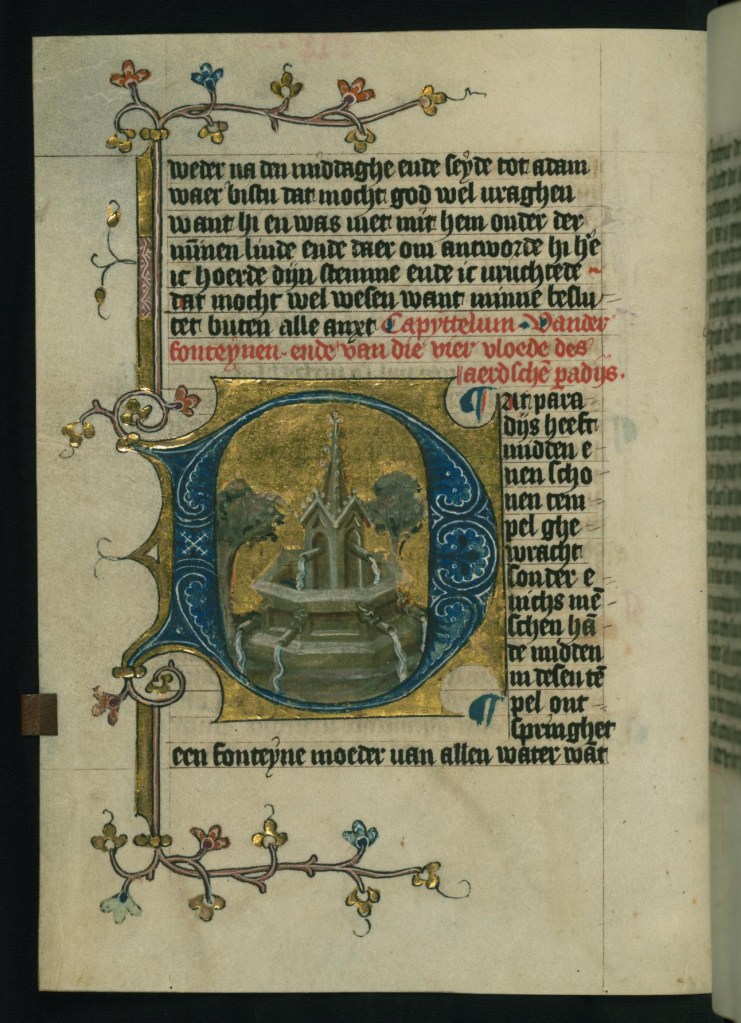 weder na den middaghe ende seyde tot adam
waer bistu dat mocht god wel uraghen
want hi en was niet mit hem onder der
minnen linde ende daer om antworde hi hē
ic hoerde dijn stemme ende ic uruchtede
dat mocht wel wesen want minne beslu
tet buten alle anxt Capyttelum Vander
fonteynen ende van die vier vloede des
aerdschē padijs.
D¶at para
dijs heeft
midden e
nen scho
nen tem
pel ghe
wracht
sonder e
nichs mē
schen hā
de midden
in desen tē
¶ pel ont
springhet
een fonteyne moeder uan allen water wāt